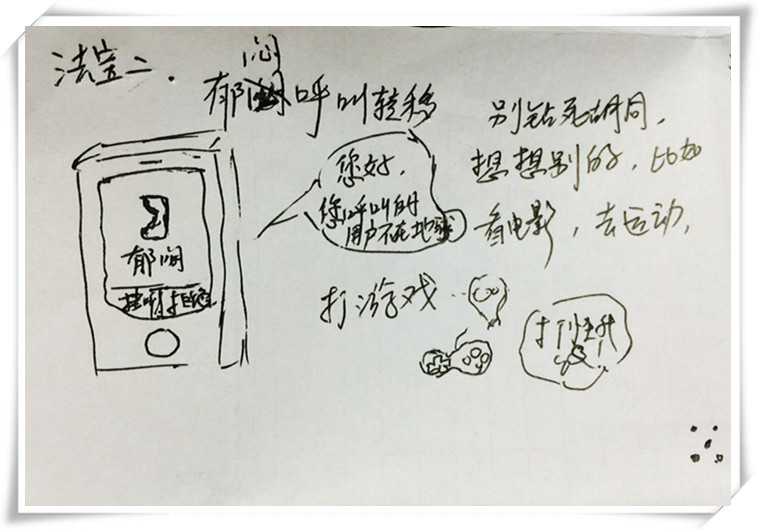 法宝二.
郁闷呼叫转移
别钻死胡同,
想想别的,比如
看电影,去运动,
打游戏
您好,
您呼叫的
用户不在地球
郁闷
接听 拒绝